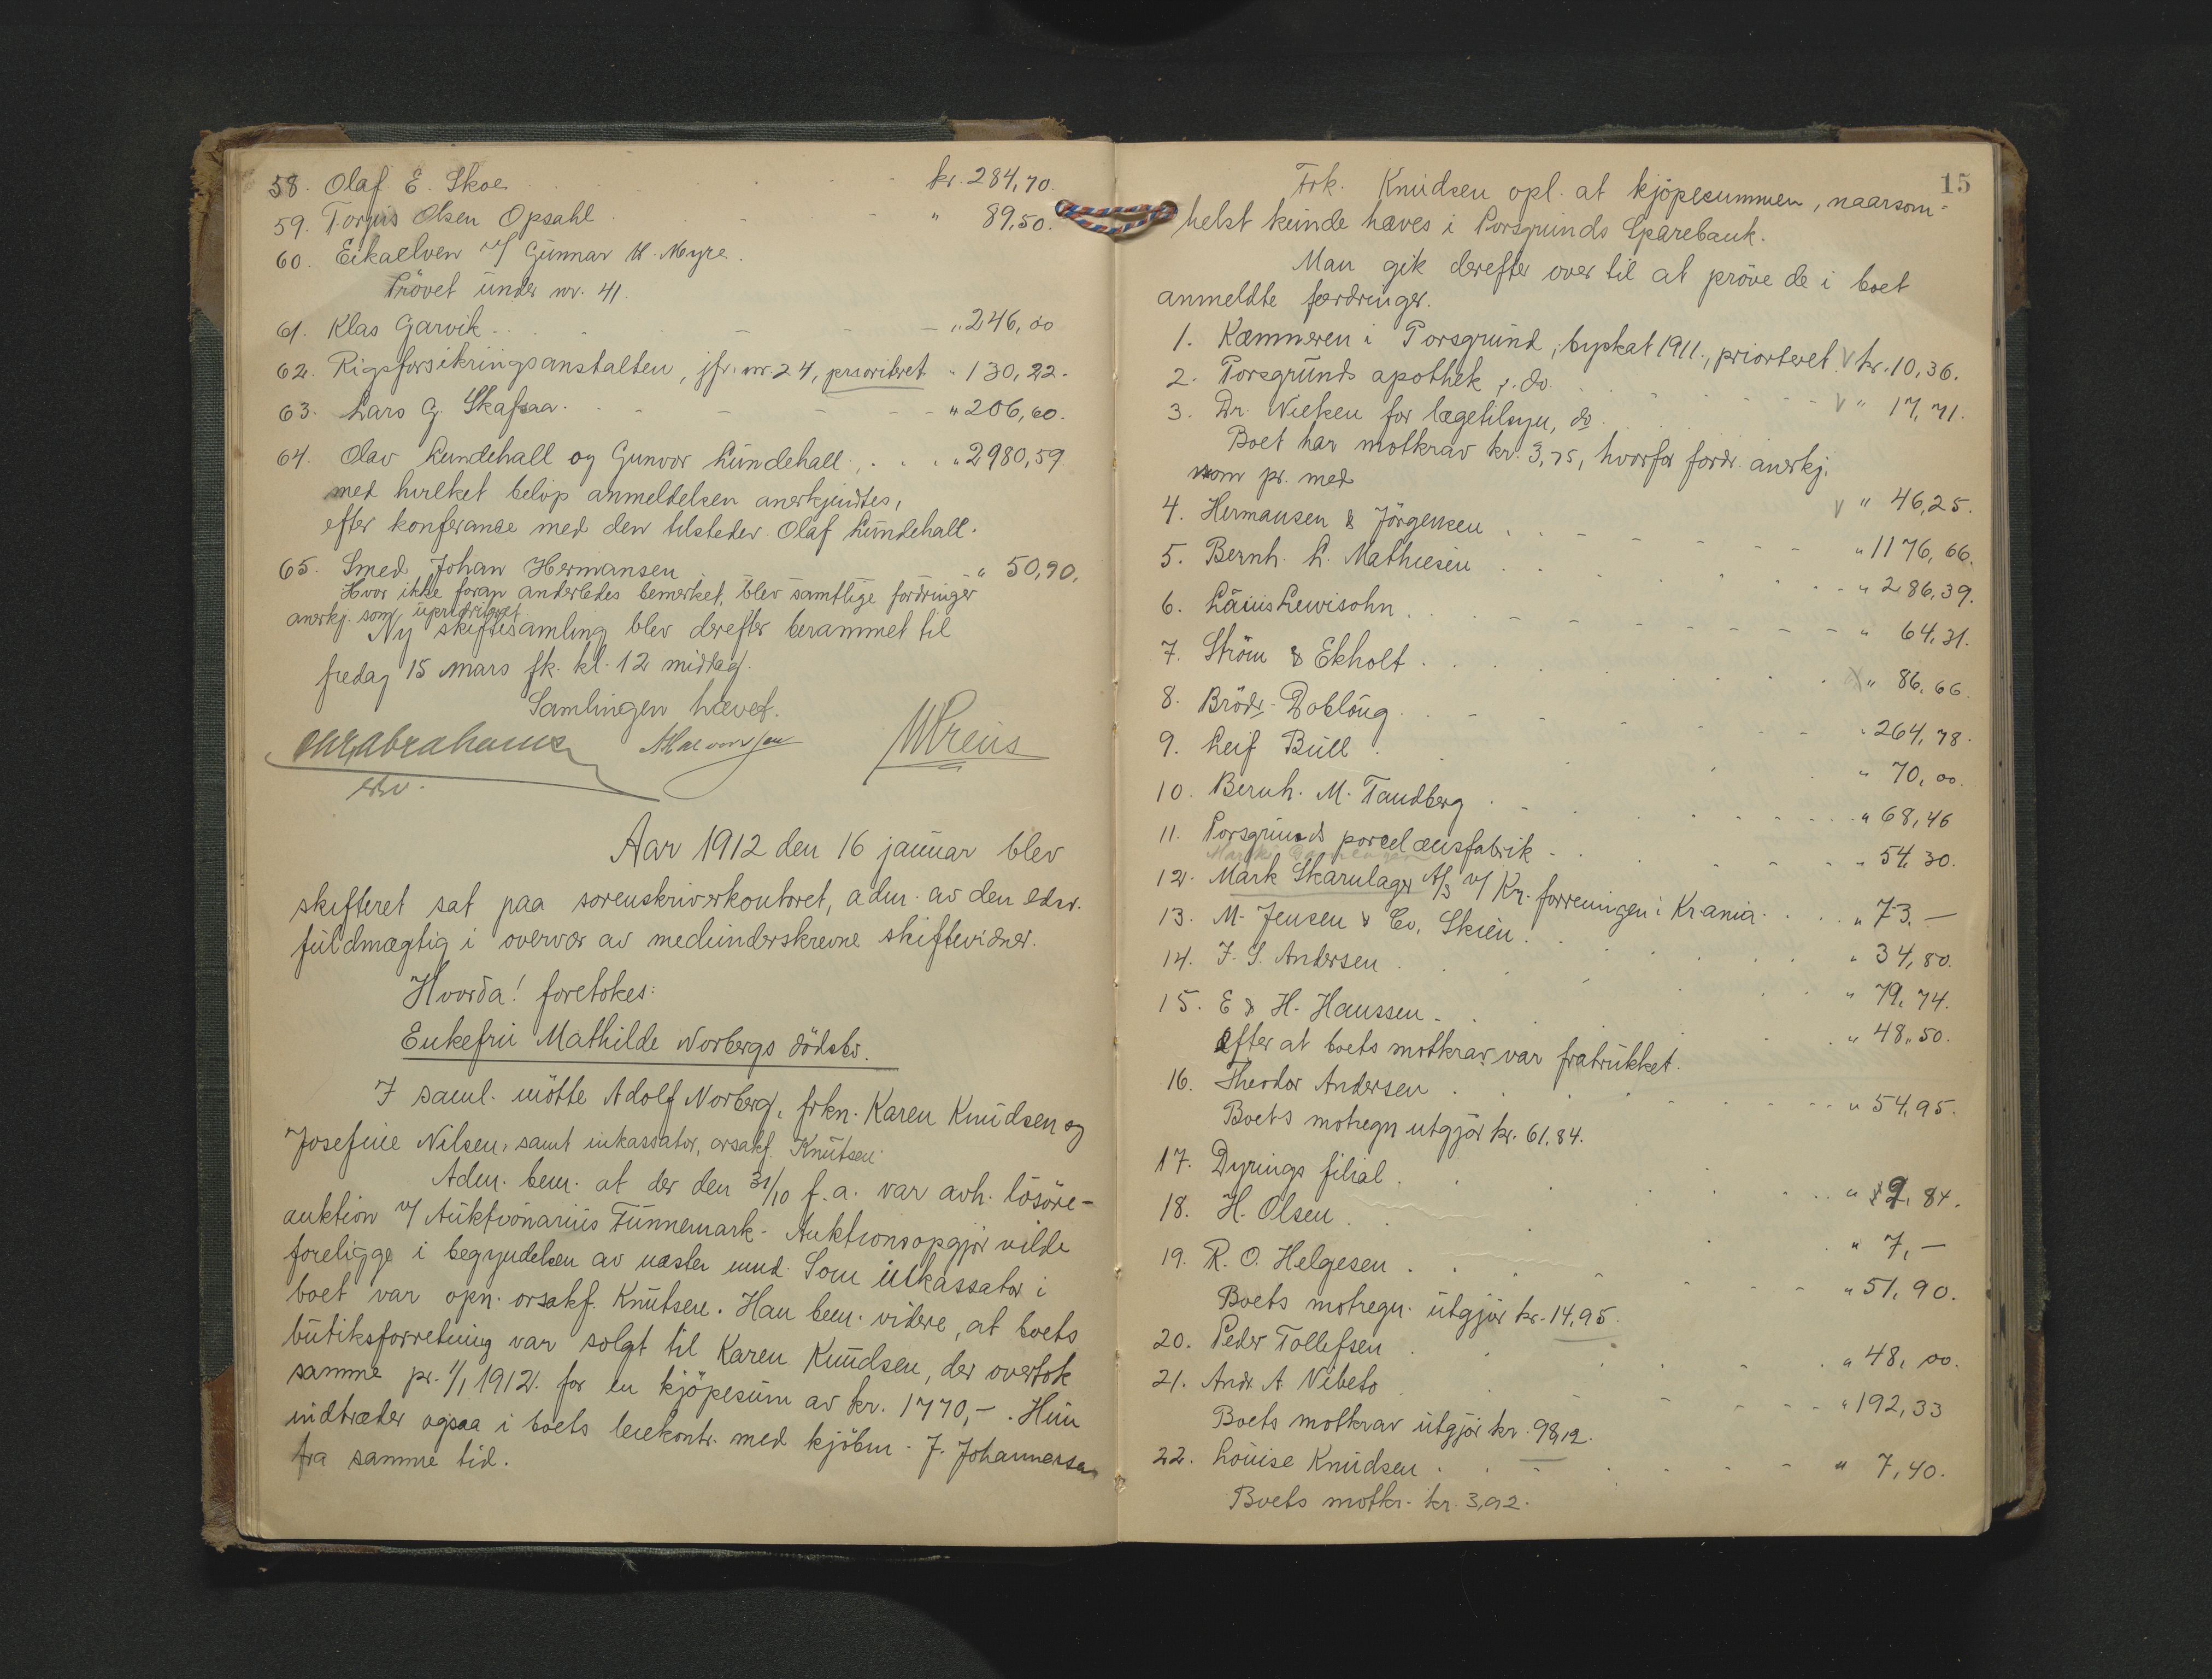 58. Olaf E. Skoe kr. 284,70.
59. Torjus Olsen Opsahl " 89,50.
60. Eikaelven v/ Gunnar H. Myre.
Prövet under nr. 41.
61. Klas Garvik " 246,00
62. Rigsforsikringsanstalten, jfr. nr. 24, prioritert " 130,22.
63. Lars G. Skafsaa. " 206,60.
64. Olav Lundehall og Gunvor Lundehall " 2980,59
med hvilket belöp anmeldelsen anerkjendtes,
efter konferanse med den tilstedev. Olaf Lundehall.
65. Smed Johan Hermansen " 50,90.
Hvor ikke foran anderledes bemerket, blev samtlige fordringer
anerkj. som uprioritert.
Ny skiftesamling blev derefter berammet til
fredag 15 mars fk. kl. 12 middag.
Samlingen hævet.
edsv.
Aar 1912 den 16 januar blev
skifteret sat paa sorenskriverkontoret, adm. av den edsv.
fuldmægtig i overvær av medunderskrevne skiftevidner.
Hvorda! foretokes:
Enkefru Mathilde Norbergs dödsbo.
I saml. mötte Adolf Norberg, frkn. Karen Knudsen og
Josefine Nilsen, samt inkassator, orsakf. Knutsen.
Adm. bem. at der den 31/10 f.a. var avh. lösöre-
auktion v/ Auktionarius Tunnemark. Auktionsopgjör vilde
foreligge i begyndelsen av næste mnd. Som inkassator i
boet var opn. orsakf. Knutsen. Han bem. videre, at boets
butiksforretning var solgt til Karen Knudsen, der overtok
samme pr. 1/1 1912. for en kjöpesum av kr. 1770,-. Hun
indtræder ogsaa i boets leiekontr. med kjöbm. J. Johannesen
fra samme tid.
15
Frk. Knudsen opl. at kjöpesummen, naarsom-
helst kunde hæves i Porsgrunds Sparebank.
Man gik derefter over til at pröve de i boet
anmeldte fordringer.
1. Kæmneren i Porsgrund, byskat 1911, priorteret V kr. 10,36.
2. Porsgrunds apothek, do. V " 17,71.
3. Dr. Nielsen for lægetilsyn, do
Boet har motkrav kr. 3,75, hvorfor fordr. anerkj.
som pr. med V " 46,25.
4. Hermansen & Jörgensen " 1176,66.
5. Bernh. L. Mathiesen " 286,39.
6. Laius Lewisohn " 64,31.
7. Ström & Ekholt " 86,66.
8. Brödr. Doblong " 264,78.
9. Leif Bull " 70,00.
10. Bernh. M. Tandberg " 68,46
11. Porsgrunds porcelænsfabrik " 54,30.
12. Mark Skarulager A/S v/ Kr. forreningen i Kr.ania " 73.-
13. M. Jensen & Co, Skien " 34,80.
14. J. S. Andersen " 79,74.
15. E & H. Hanssen " 48,50.
Efter at boets motkrav var fratrukket.
16. Theodor Andersen " 54,95.
Boets motregn utgjör kr. 61,84.
17. Dyrings filial " 9,84.
18. H. Olsen " 7,-
19. R. O. Helgesen " 51,90.
Boets motregn. utgjör kr. 14,95.
20. Peder Tollefsen " 48,00.
21. Andr. A. Nibeto " 192,33
Boets motkrav utgjör kr. 98,12.
22. Louise Knudsen " 7,40.
Boets motkr. kr. 3,92.